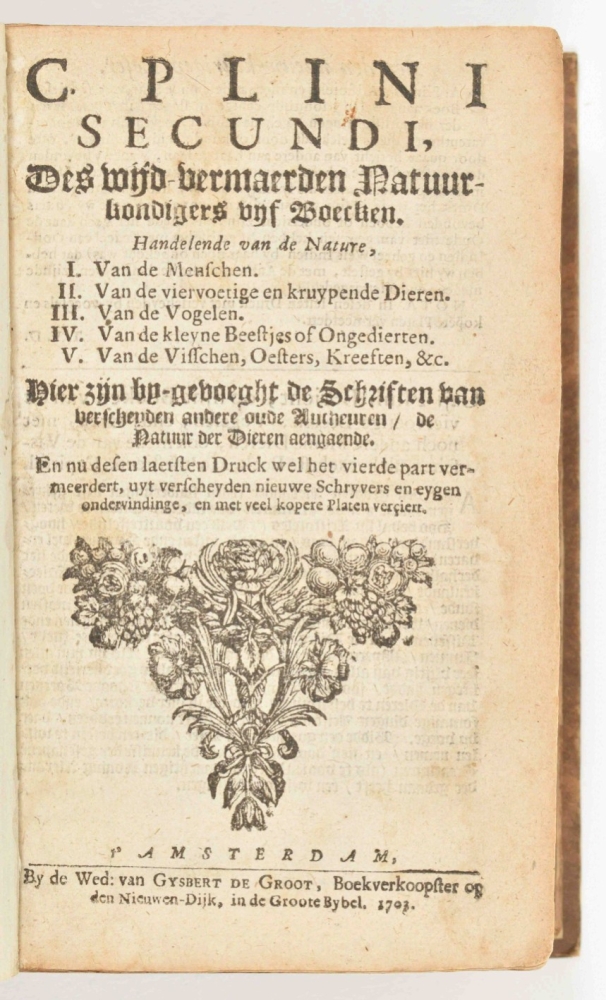 C. PLINI
SECUNDI,
Des wijd-vermaerden Natuur-
kondigers vyf Boecken.
Handelende van de Nature,
I. Van de Menſchen.
II. Van de viervoetige en kruypende Dieren.
III. Van de Vogelen.
IV. Van de kleyne Beeſtjes of Ongedierten.
V. Van de Viſſchen, Oeſters, Kreeften, &c.
Hier zijn by-gevoeght de Schriften van
verſcheyden andere oude Autheuren / de
Natuur der Dieren aengaende.
En nu deſen laetſten Druck wel het vierde part ver-
meerdert, uyt verſcheyden nieuwe Schryvers en eygen
ondervindinge, en met veel kopere Platen verçiert.
t' AMSTERDAM,
By de Wed: van GYSBERT DE GROOT, Boekverkoopſter op
den Nieuwen-Dijk, in de Groote Bybel. 1703.